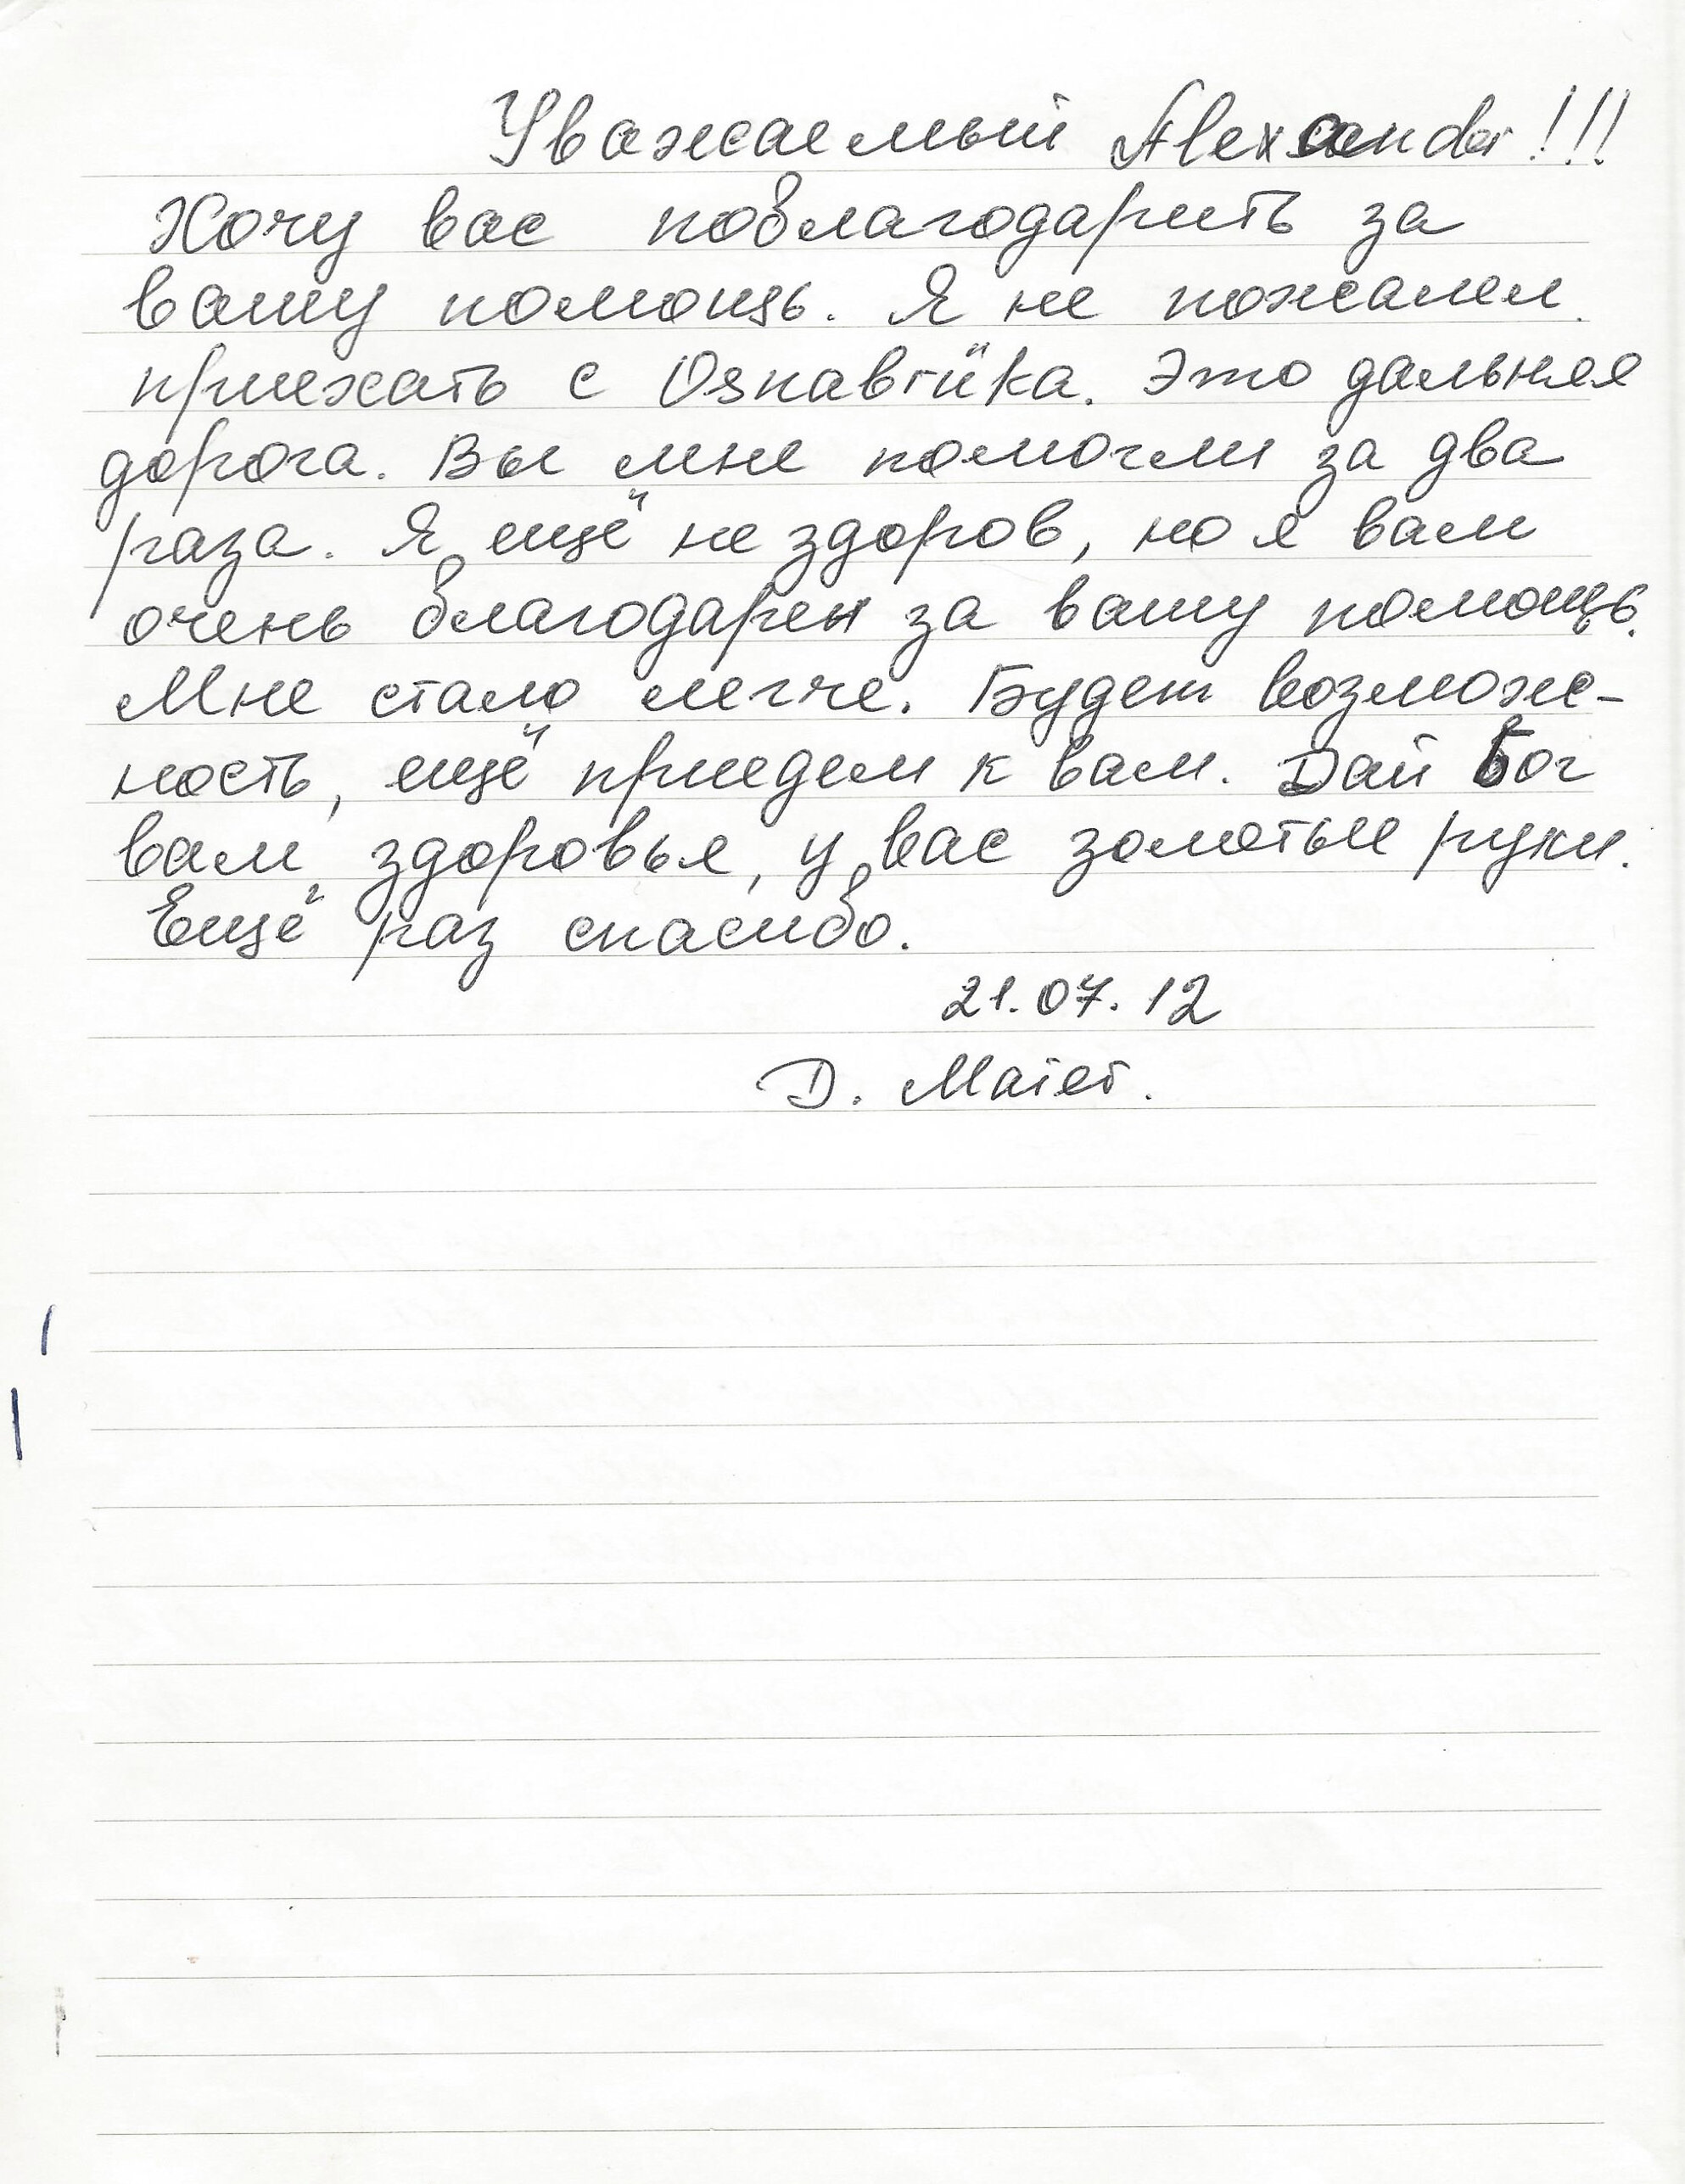 Уважаемый Alexander!!!
Хочу вас поблагодарить за
вашу помощь. Я не пожалел
приехать с Osnabrüka. Это дальняя
дорога. Вы мне помогли за два
раза. Я ещё не здоров, но я вам
очень благодарен за вашу помощь.
Мне стало легче. Будет возмож-
ность, ещё приедем к вам. Дай Бог
вам здоровья, у вас золотые руки.
Ещё раз спасибо.
21.07.12
D. Maier.